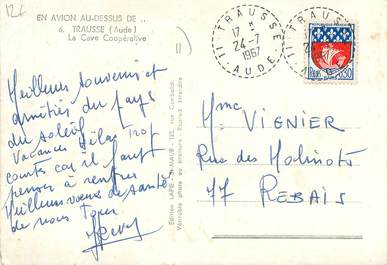 EN AVION AU-DESSUS DE ..
6. TRAUSSE (Aude)
La Cave Coopérative
Meilleurs souvenirs et
amitiés du pays
du soleil
Vacances hélas trop
courtes car il faut
penser à rentrer
Meilleurs vœux de santé
de nous Tous
TRAUSSE
17
24-7
1967
AUDE
REPUBLIQUE FRANÇAISE
PARIS 0,30
Mme VIGNIER
Rue des Molinots
77 REBAIS